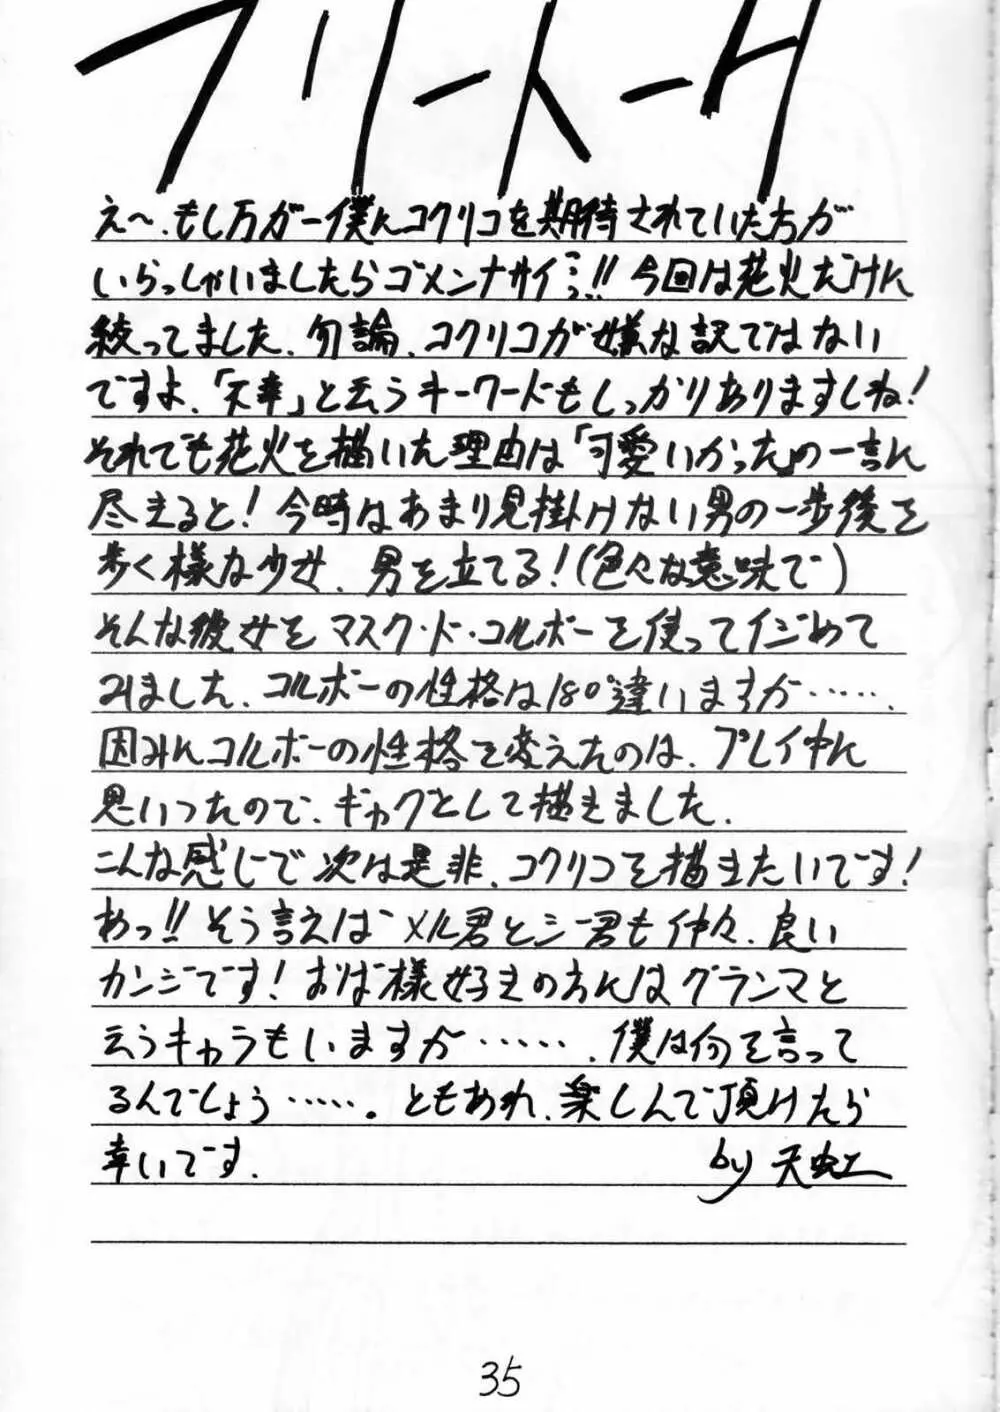 フリートーク
え〜、もし万が一僕にコクリコを期待されていた方が
いらっしゃいましたらゴメンナサイ…!! 今回は花火だけに
絞ってました、勿論、コクリコが嫌な訳ではない
ですよ、「不幸」と云うキーワードもしっかりありますしね!
それでも花火を描いた理由は「可愛いかった」の一言に
尽きると! 今時はあまり見掛けない男の一歩後を
歩く様な少女、男を立てる!(色々な意味で)
そんな彼女をマスク・ド・コルボーを使ってイジめて
みました、コルボーの性格は180°違いますが……
因みにコルボーの性格を変えたのは、プレイ中に
思いついたので、ギャグとして描きました、
こんな感じで次は是非、コクリコを描きたいです!
あっ!! そう言えばメル君とシー君も仲々、良い
カンジです! おば様好きの方にはグランマと
云うキャラもいますが……、僕は何を言って
るんでしょう……。ともあれ、楽しんで頂けたら
幸いです、
by 天虹
35